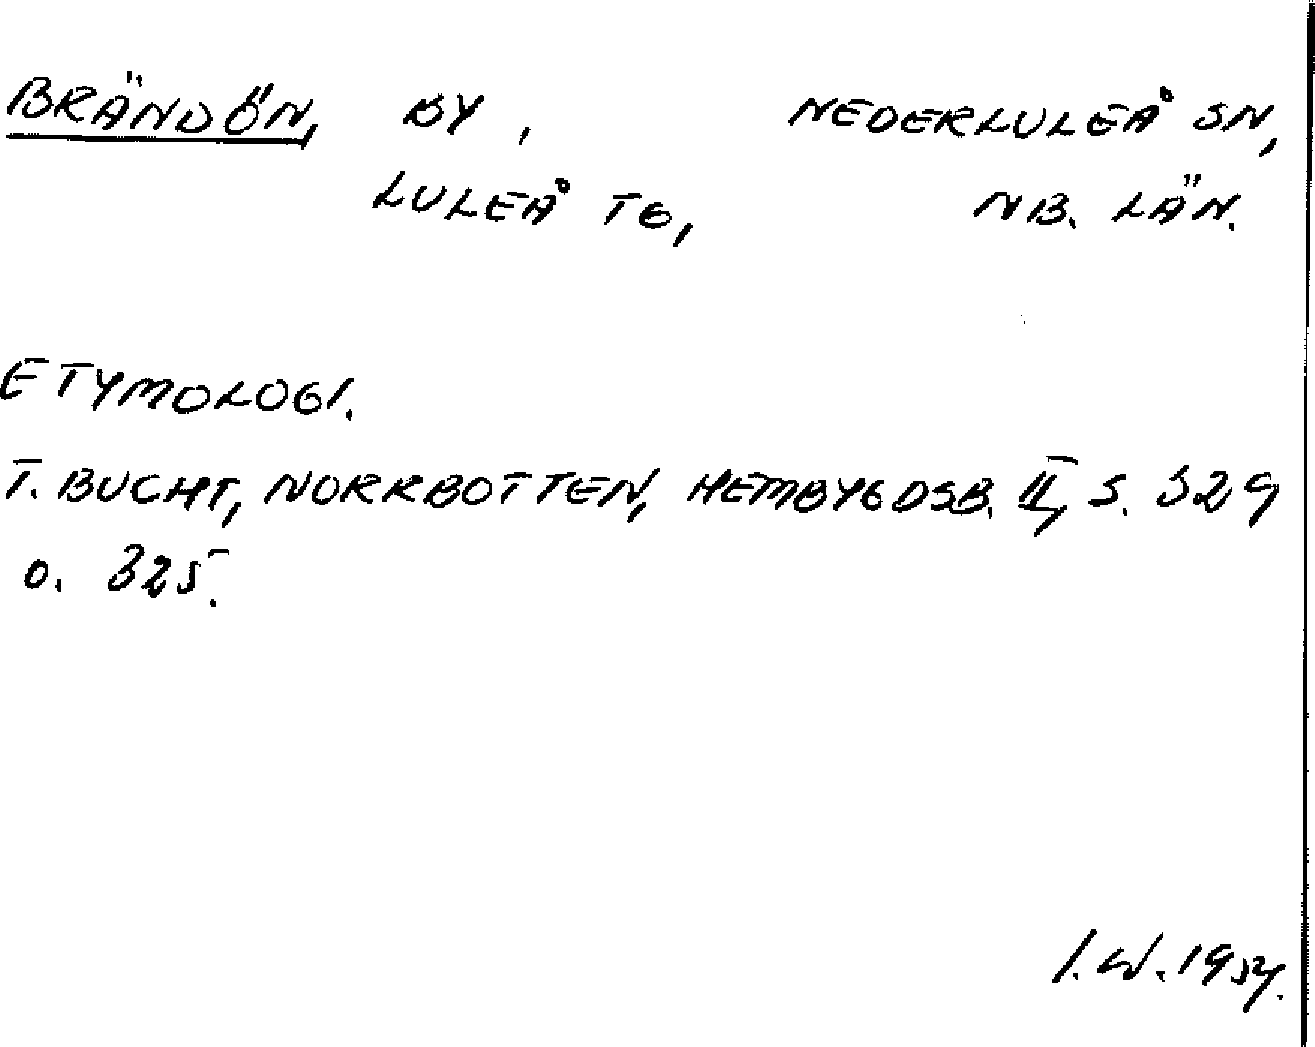 BRÄNDÖN, BY, NEDERLULEÅ SN,
LULEÅ TG, NB. LÄN.
ETYMOLOGI.
T. BUCHT, NORRBOTTEN, HEMBYGDSB. II, S. 329
O. 325.
I.W. 1954.